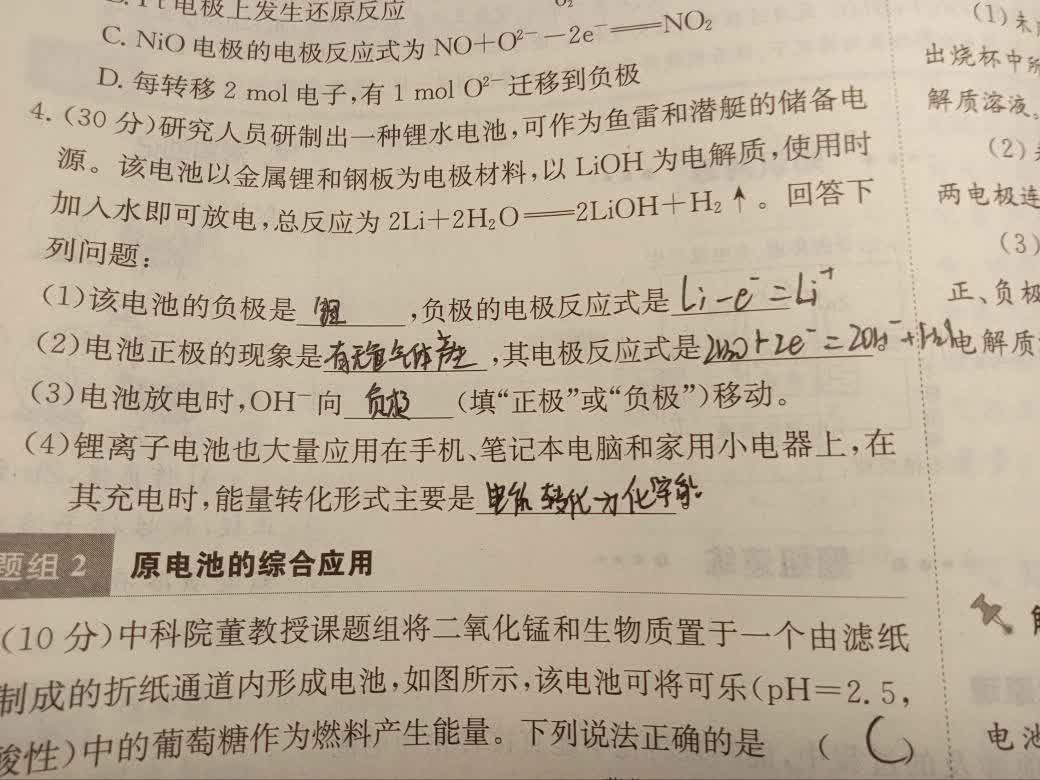 Pt电极上发生还原反应
C. NiO 电极的电极反应式为 NO+O²⁻−2e⁻══NO₂
D. 每转移 2 mol 电子,有 1 mol O²⁻ 迁移到负极
4. (30 分)研究人员研制出一种锂水电池,可作为鱼雷和潜艇的储备电
源。该电池以金属锂和钢板为电极材料,以 LiOH 为电解质,使用时
加入水即可放电,总反应为 2Li+2H₂O══2LiOH+H₂↑。回答下
列问题:
(1)该电池的负极是 锂 ,负极的电极反应式是 Li-e⁻=Li⁺
(2)电池正极的现象是 有无色气体产生 ,其电极反应式是 2H₂O+2e⁻=2OH⁻+H₂↑
(3)电池放电时,OH⁻ 向 负极 (填“正极”或“负极”)移动。
(4)锂离子电池也大量应用在手机、笔记本电脑和家用小电器上,在
其充电时,能量转化形式主要是 电能转化为化学能
题组 2 原电池的综合应用
(10 分)中科院董教授课题组将二氧化锰和生物质置于一个由滤纸
制成的折纸通道内形成电池,如图所示,该电池可将可乐(pH=2.5,
酸性)中的葡萄糖作为燃料产生能量。下列说法正确的是 ( C )
(1)未
出烧杯中所
解质溶液。
(2)
两电极连
(3)
正、负极
电解质
电池